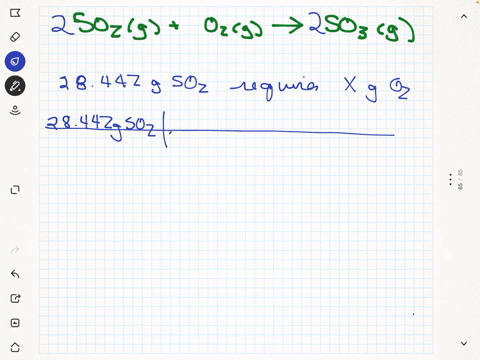 2SO₂(g) + O₂(g) → 2SO₃(g)
28.442 g SO₂ requires X g O₂
28.442g SO₂
65 / 65